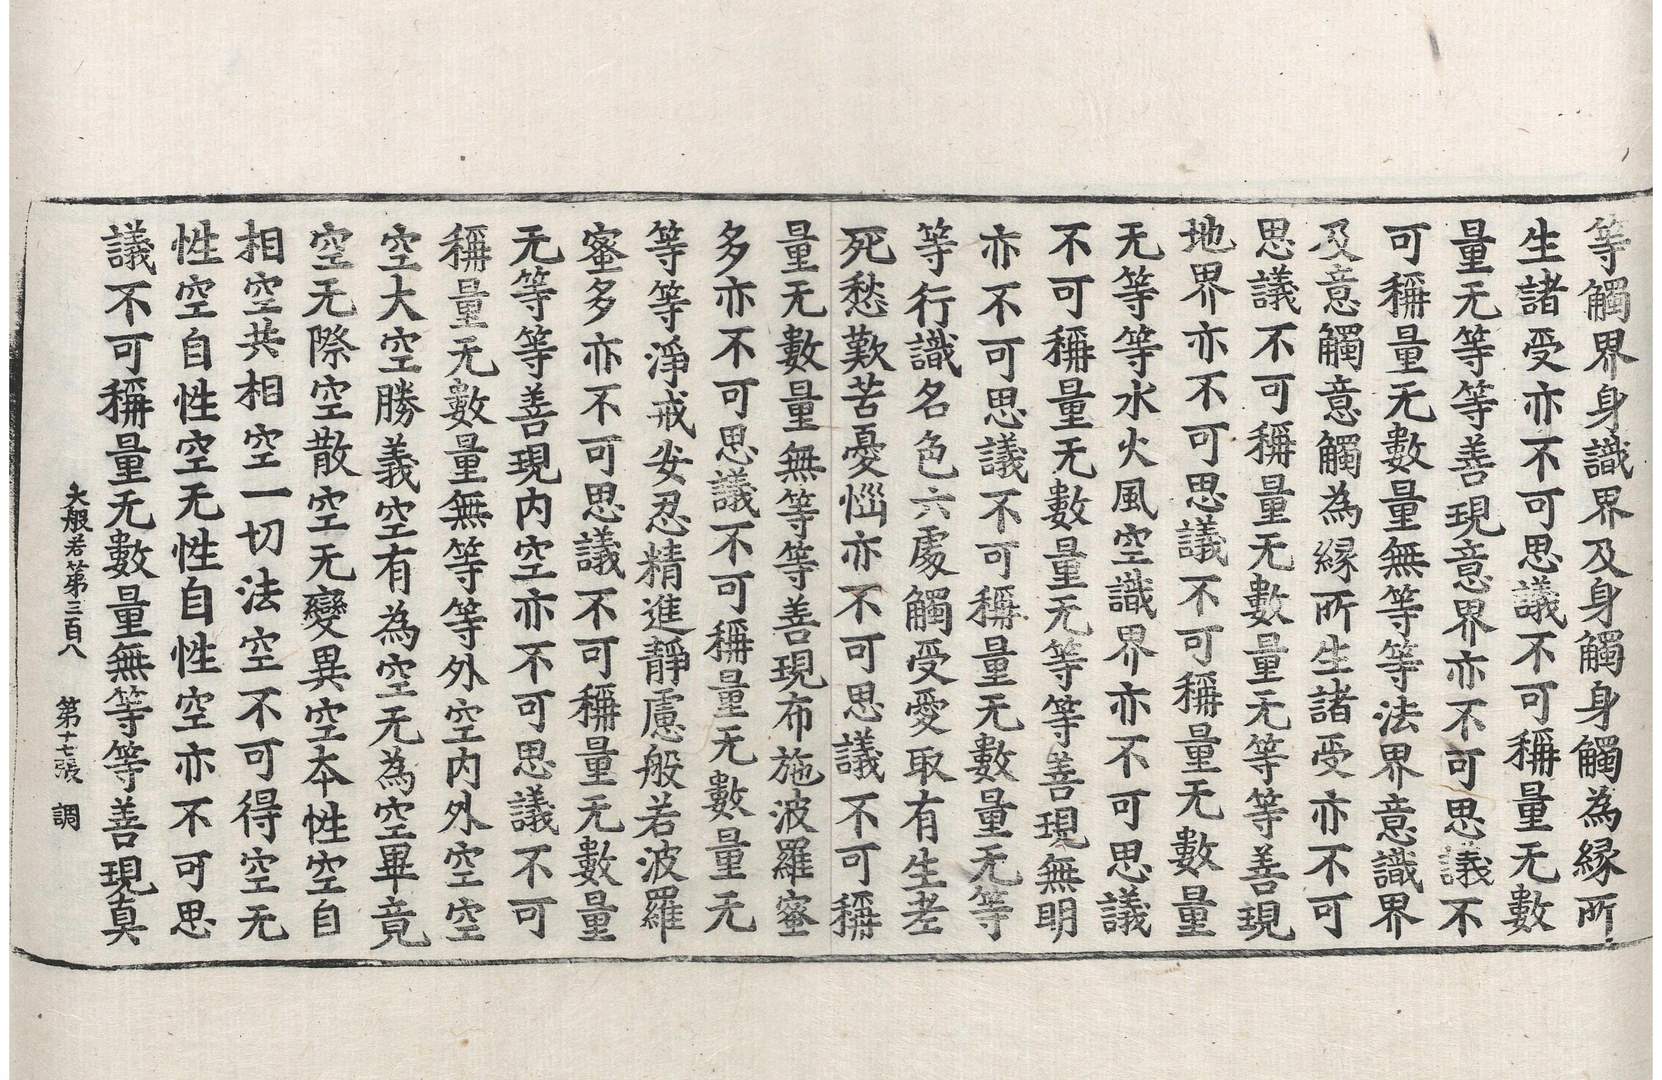 等觸界身識界及身觸身觸為縁所
生諸受亦不可思議不可稱量无數
量无等等善現意界亦不可思議不
可稱量无數量無等等法界意識界
及意觸意觸為縁所生諸受亦不可
思議不可稱量无數量无等等善現
地界亦不可思議不可稱量无數量
无等等水火風空識界亦不可思議
不可稱量无數量无等等善現無明
亦不可思議不可稱量无數量无等
等行識名色六處觸受愛取有生老
死愁歎苦憂惱亦不可思議不可稱
量无數量無等等善現布施波羅蜜
多亦不可思議不可稱量无數量无
等等淨戒安忍精進靜慮般若波羅
蜜多亦不可思議不可稱量无數量
无等等善現内空亦不可思議不可
稱量无數量無等等外空内外空空
空大空勝義空有為空无為空畢竟
空无際空散空无變異空本性空自
相空共相空一切法空不可得空无
性空自性空无性自性空亦不可思
議不可稱量无數量無等等善現真
大般若第三百八　第十七張　調